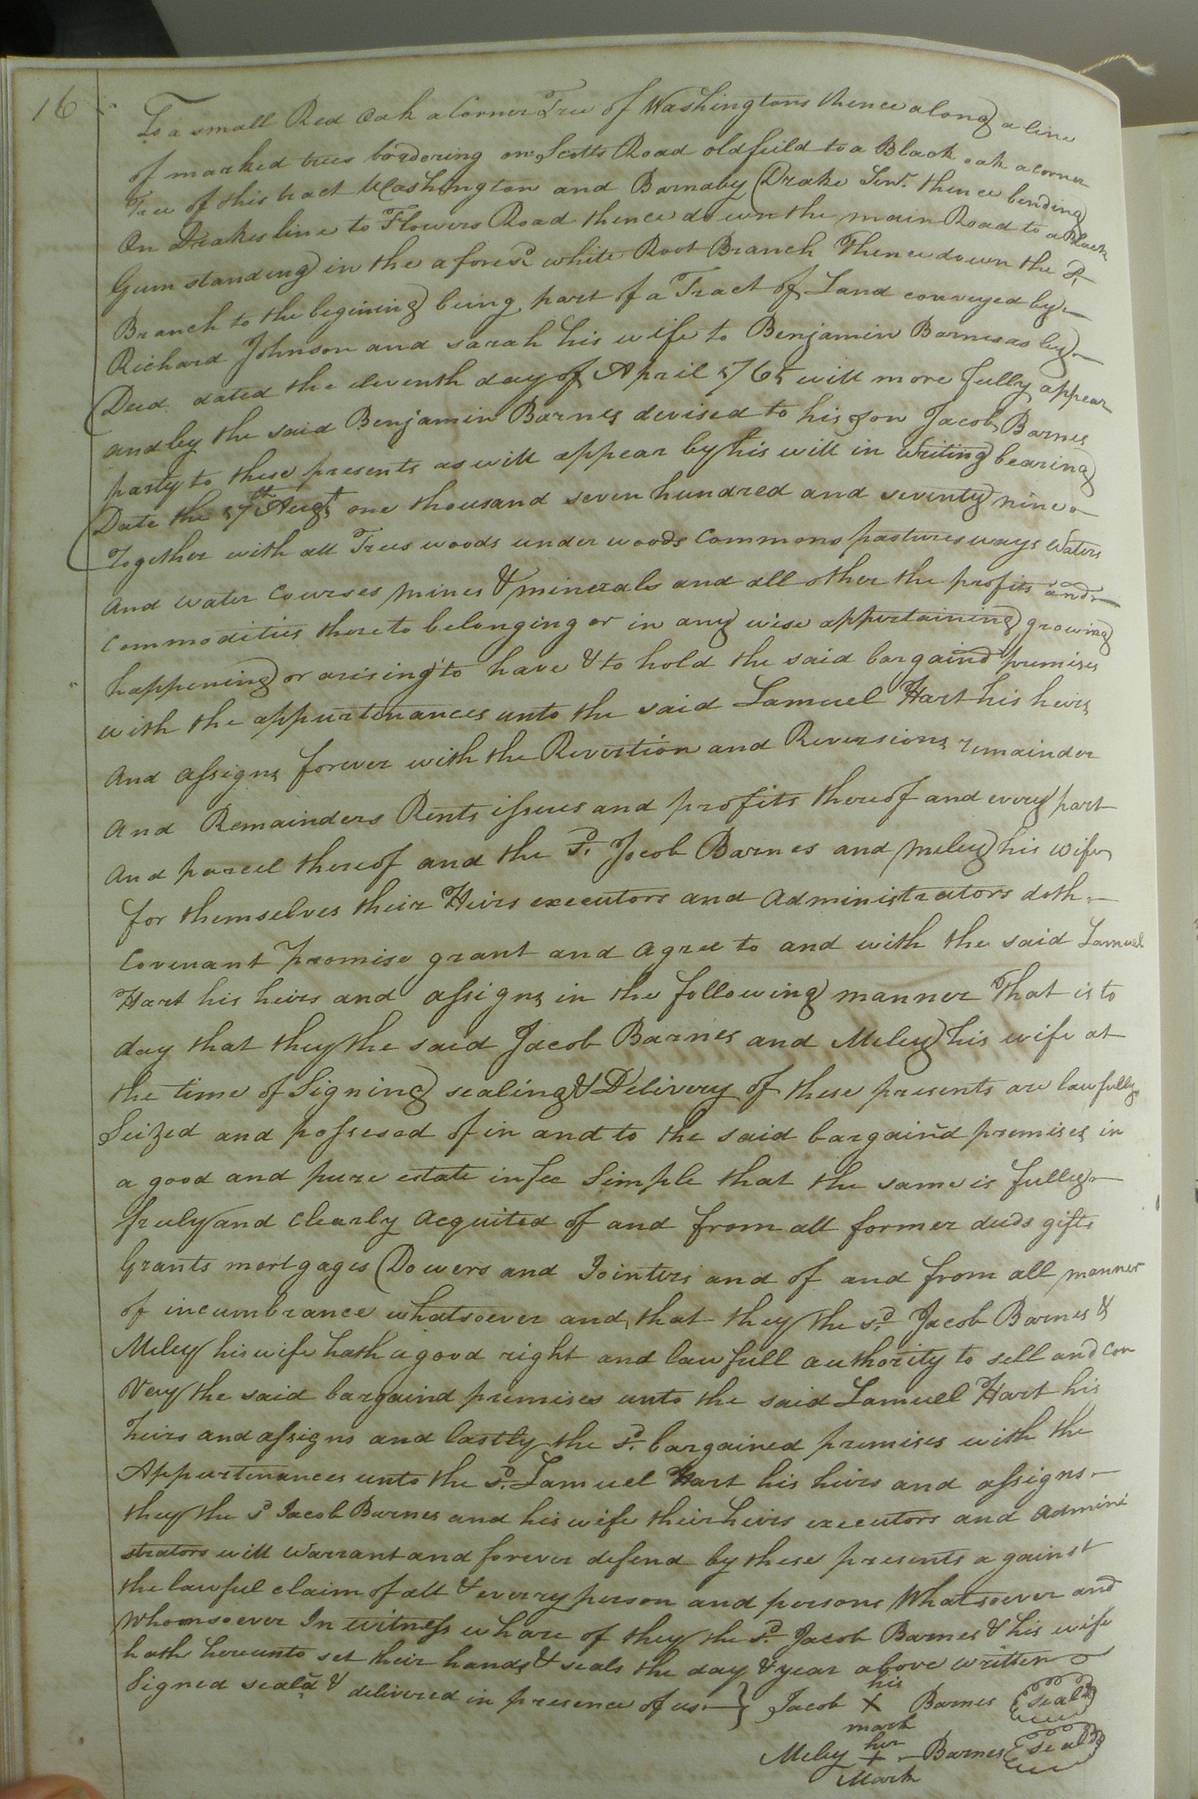 16
To a small Red Oak a Corner Tree of Washingtons thence along a line
of marked trees bordering on Scotts Road oldfeild to a Black oak a corner
Tree of this tract Washington and Barnaby Drake Senr. thence bending
On Drakes line to Flowers Road thence down the main Road to a Black
Gum standing in the aforesd. white Root Branch Thence down the sd.
Branch to the begining being part of a Tract of Land conveyed by
Richard Johnson and sarah his wife to Benjamin Barnes as by
Deed dated the eleventh day of April 1765 will more fully appear
and by the said Benjamin Barnes devised to his son Jacob Barnes
party to these presents as will appear by his will in writing bearing
Date the 17th Augt one thousand seven hundred and seventy nine
Together with all Trees woods under woods Commons pastures ways waters
And water Courses mines & minerals and all other the profits and
Commodities thereto belonging or in any wise appertaining growing
happening or arising to have & to hold the said bargaind premises
with the appurtenances unto the said Samuel Hart his heirs
And assigns forever with the Revertion and Reversions remainder
And Remainders Rents issues and profits thereof and every part
And parcel thereof and the sd. Jacob Barnes and Meley his wife
for themselves their Heirs executors and Administrators doth
Covenant Promise grant and agree to and with the said Samuel
Hart his heirs and assigns in the following manner That is to
day that they the said Jacob Barnes and Meley his wife at
the time of Signing sealing & Delivery of these presents are lawfully
Seized and possesed of in and to the said bargaind premises in
a good and pure estate in fee Simple that the same is fully
truly and clearly acquited of and from all former deeds gifts
Grants mortgages Dowers and Jointers and of and from all manner
of incumbrance whatsoever and that they the sd. Jacob Barnes &
Meley his wife hath a good right and lawfull authority to sell and con
vey the said bargaind premises unto the said Samuel Hart his
heirs and assigns and lastly the sd. bargained premises with the
Appurtenances unto the sd. Samuel Hart his heirs and assigns
they the sd Jacob Barnes and his wife their heirs executors and Admini
strators will Warrant and forever defend by these presents against
the lawful claim of all & every person and persons Whatsoever and
Whomsoever In witness whare of they the sd. Jacob Barnes & his wife
hath hereunto set their hands & seals the day & year above written
Signed seald & delivered in presence of us } Jacob his X mark Barnes seal
Meley her + Mark Barnes seal